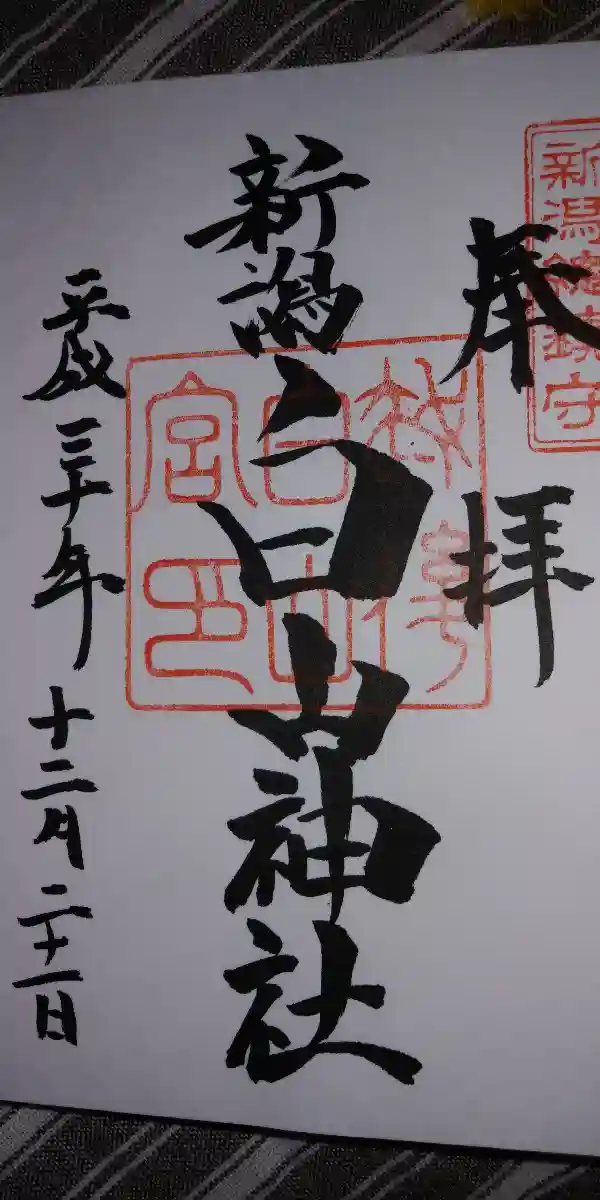 新潟總鎮守
奉拝
新潟白山神社
平成三十年十二月二十一日